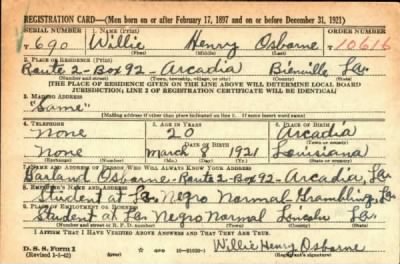 REGISTRATION CARD—(Men born on or after February 17, 1897 and on or before December 31, 1921)
SERIAL NUMBER 1. NAME (Print) ORDER NUMBER
T 690 Willie Henry Osborne 10616
(First) (Middle) (Last)
2. PLACE OF RESIDENCE (Print)
Route 2-Box 92-Arcadia Bienville La.
(Number and street) (Town, township, village, or city) (County) (State)
[THE PLACE OF RESIDENCE GIVEN ON THE LINE ABOVE WILL DETERMINE LOCAL BOARD
JURISDICTION; LINE 2 OF REGISTRATION CERTIFICATE WILL BE IDENTICAL]
3. MAILING ADDRESS
"Same"
[Mailing address if other than place indicated on line 2. If same insert word same]
4. TELEPHONE 5. AGE IN YEARS 6. PLACE OF BIRTH
None 20 Arcadia
DATE OF BIRTH (Town or county)
None March 8 1921 Louisiana
(Exchange) (Number) (Mo.) (Day) (Yr.) (State or country)
7. NAME AND ADDRESS OF PERSON WHO WILL ALWAYS KNOW YOUR ADDRESS
Garland Osborne-Route 2-Box 92-Arcadia, La.
8. EMPLOYER'S NAME AND ADDRESS
Student at La. Negro Normal Grambling, La.
9. PLACE OF EMPLOYMENT OR BUSINESS
Student at La. Negro Normal Lincoln La.
(Number and street or R. F. D. number) (Town) (County) (State)
I AFFIRM THAT I HAVE VERIFIED ABOVE ANSWERS AND THAT THEY ARE TRUE.
D. S. S. Form 1
(Revised 1-1-42) GPO Willie Henry Osborne
(Registrant's signature)